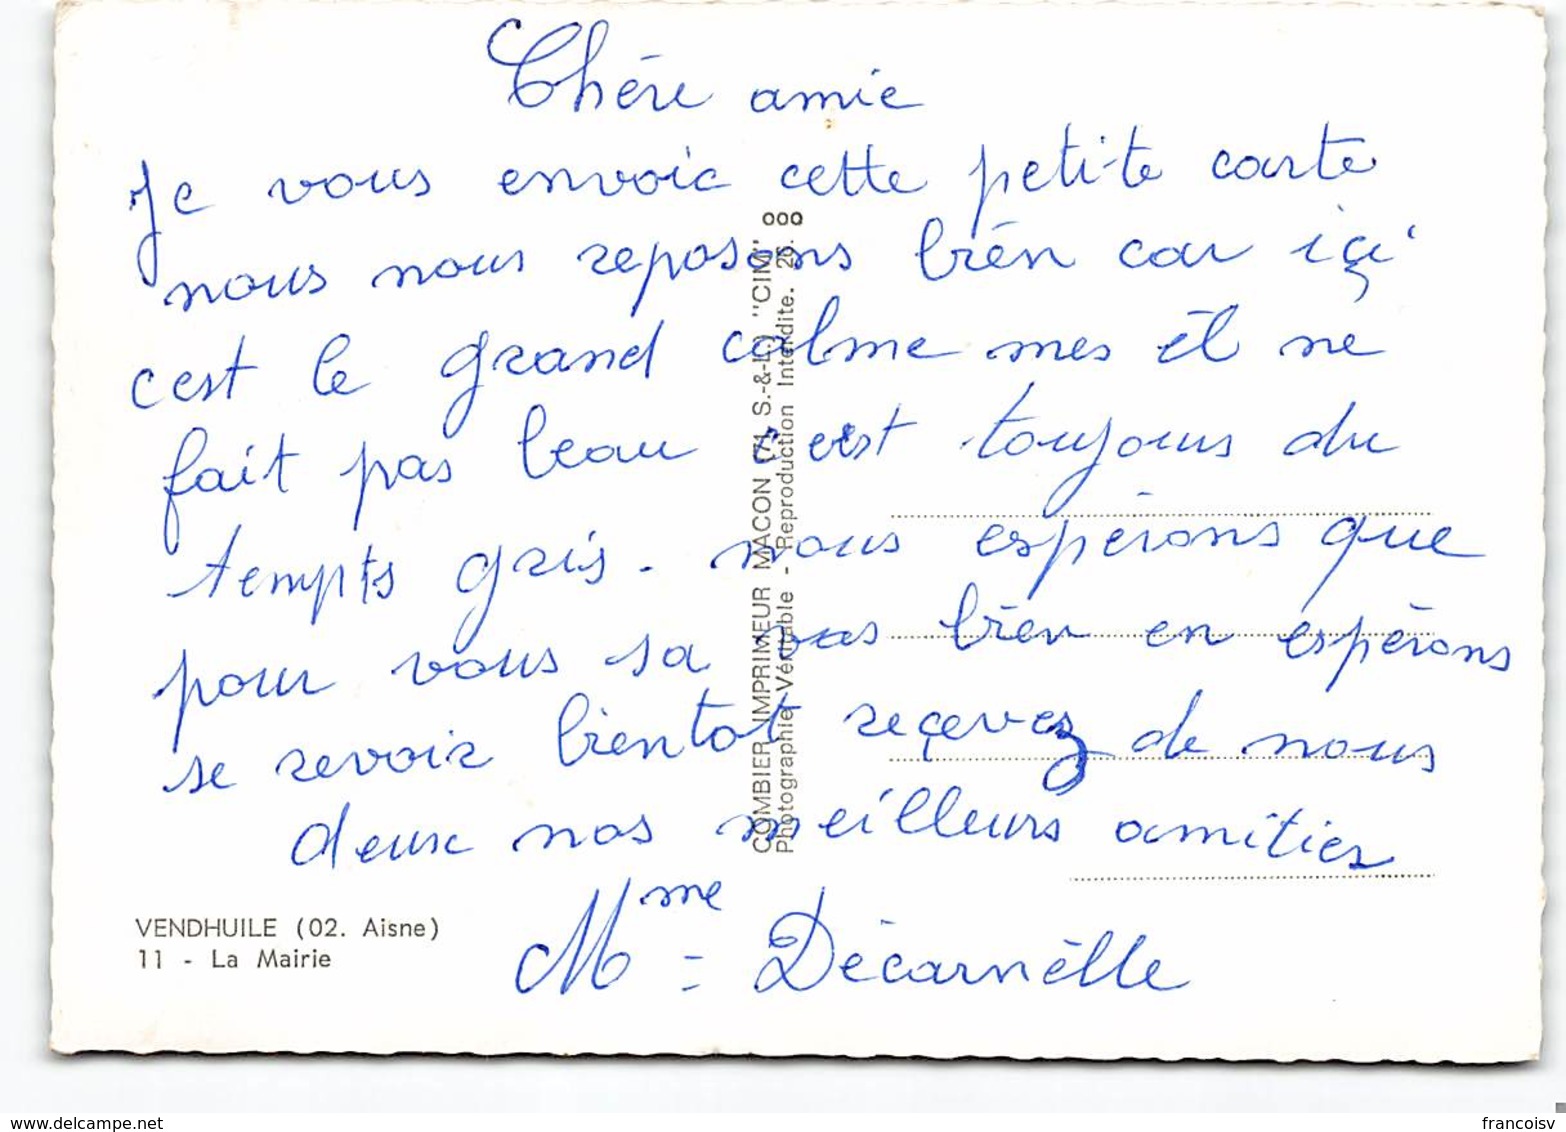 Chére amie
Je vous envoie cette petite carte
nous nous reposons bién car içi
c'est le grand calme mes il ne
fait pas beau c'est toujours du
tempts gris. nous espérons que
pour vous sa vas bien en éspérons
se revoir bientot reçevez de nous
deux nos meilleurs amitiez
Mme Décarnèlle
VENDHUILE (02. Aisne)
11 - La Mairie
COMBIER IMPRIMEUR MACON (71, S.-&-L.) "CIM" ooo
Photographie Véritable - Reproduction Interdite. 26.
francoisv